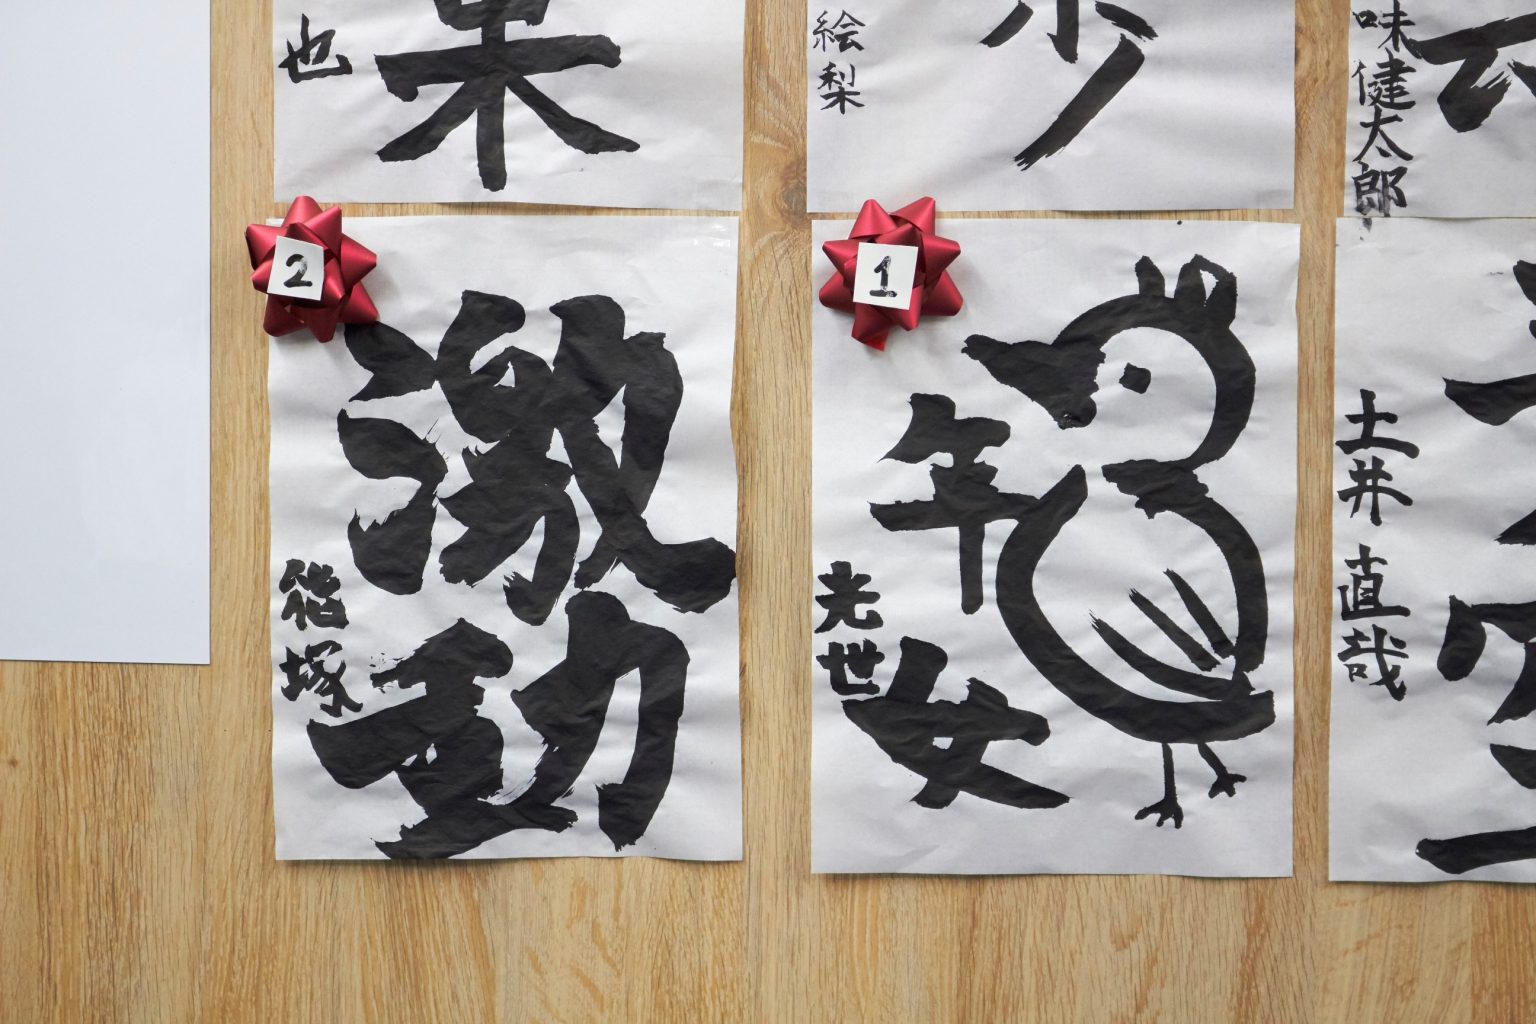 也
果
絵梨
少
味健太郎
2
激動
能塚
1
年女
光世
土井直哉